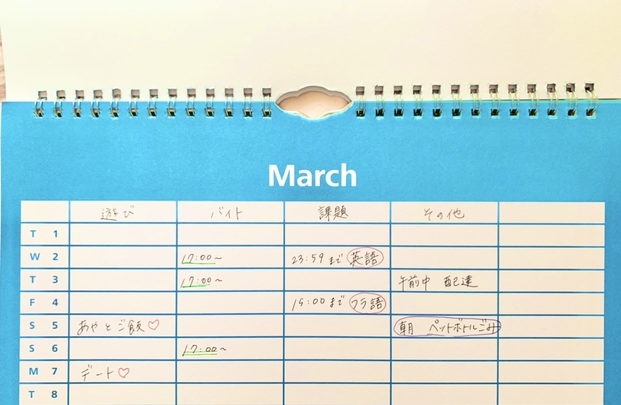 March
遊び バイト 課題 その他
T 1
W 2 17:00~ 23:59まで 英語
T 3 17:00~ 午前中 配達
F 4 19:00まで フラ語
S 5 あやとご飯♡ 朝 ペットボトルごみ
S 6 17:00~
M 7 デート♡
T 8